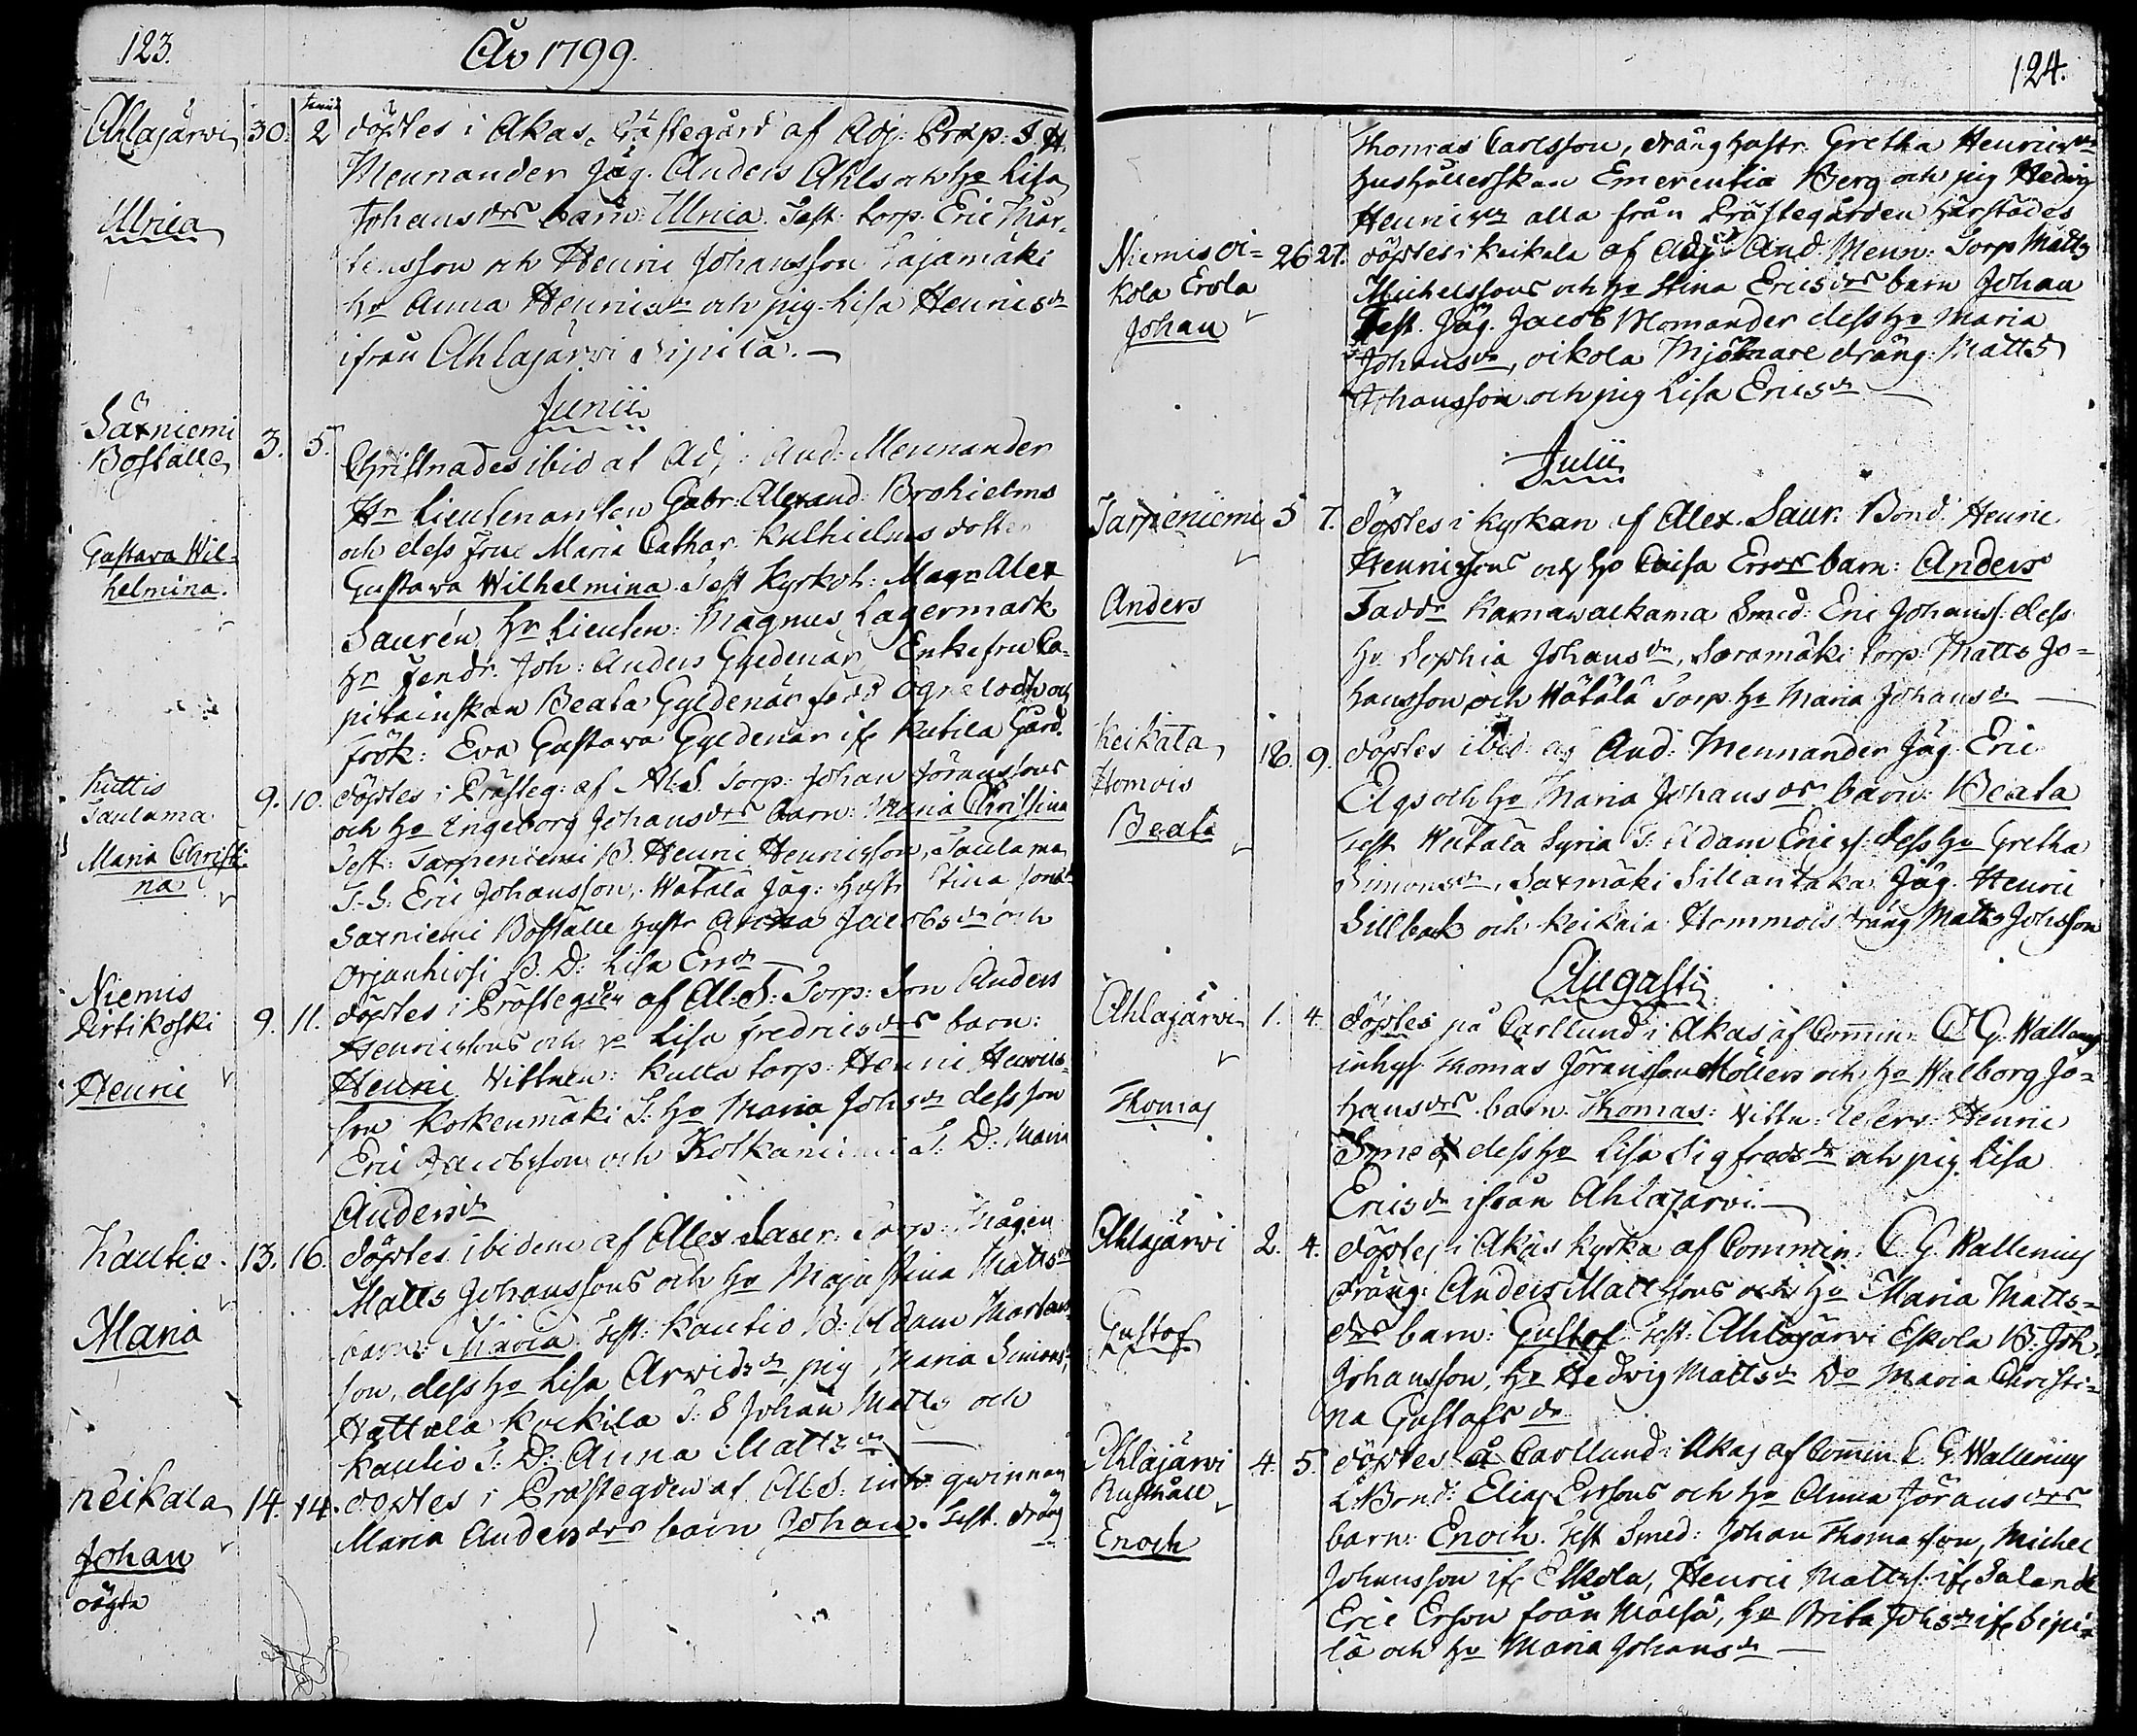 123.
År 1799.
Ahlajärvi 30. Junii 2 döptes i Akas Gästegård af Adj: Præp: S. H.
Mennander Jäg. Anders Ahls och ho Lisa
Ulrica Johansdrs barn: Ulrica. Test: torp. Eric Mår-
tensson och Henric Johansson Lajamäki
ho Anna Henricsdr och pig. Lisa Henricsdr
ifrån Ahlajärvi Sipilä. —
Junii
Saxniemi
Boställe 3. 5. Christnades ibid af Adj: And: Mennander
Hr Lieutenanten Gabr: Alexand: Brohielms
och dess Fru Maria Cathar. Kulhielms dotter
Gustava Wil-
helmina. Gustava Wilhelmina Test Kyrkoh: Magr Alex
Saurén, Hr Lieuten: Magnus Lagermark
Hr Fendr. Joh: Anders Gyldenär, Enkefru Ca-
pitainskan Beata Gyldenär född Ognelodh och
Frök: Eva Gustava Gyldenär if Kutila Gård.
Kuttis
Taulama 9. 10. döptes i Prästeg: af Al: S. Torp: Johan Göranssons
och ho Ingeborg Johansdrs barn: Maria Christina
Maria Christi-
na Test: Tarpeniemi B. Henric Henricsson, Taulama
T. S: Eric Johansson, Wätälä Jäg: hustr Stina Jonsdr
Saxniemi Boställe hustr Anna Jacobsdr och
Orjanhirsi B. D: Lisa Ersdr —
Niemis
Pertikoski 9. 11. döptes i Prästegdn af Al: S: Torp: Son Anders
Henricssons och ho Lisa Fredricsdrs barn:
Henric Henric Vittnen: Kulla torp: Henric Henrics-
son Koskenmäki T: ho Maria Johsdr dess son
Eric Jacobsson och Kolkaniemi T. D: Maria
Andersdr
Kautio. 13. 16. döptes ibidem af Alex Saur: Torp: Mågen
Matts Johanssons och ho Maja Stina Mattsdr
Maria barn: Maria Test: Kautio B: Adam Mårtens-
son, dess ho Lisa Arvidsdr, pig Maria Simonsdr
Hattula Kockila T: S Johan Matts och
Kautio T: D: Anna Mattsdr —
Keikala 14. 14. döptes i Prästegden af Al S: inh: qwinnan
Johan
oägta Maria Andersdrs barn Johan. Test. dräng
124.
Thomas Carlsson, dräng hustr. Gretha Henricsdr
hushållerskan Emerentia Berg och pig Hedvig
Henricsdr alla från Prästegården härstädes
Niemis Oi-
kola Erola 26 27. döptes i Keikala af Adj And: Menn: Torp Matts
Michelssons och ho Stina Ericsdrs barn Johan
Johan Test. Jäg. Jacob Blomander dess ho Maria
Johansdr, Oikola Mjölnare dräng: Matts
Johansson och pig Lisa Ericsdr —
Julii
Tarpeniemi 5 7. döptes i kyrkan af Alex. Saur: Bond. Henric
Henricssons och ho Caisa Ersdrs barn: Anders
Anders Faddr Karnawalkama Smed: Eric Johanss: dess
ho Sophia Johansdr, Saramäki torp: Matts Jo-
hansson och Wätälä Torp. ho Maria Johansdr —
Keikala
Homois 18. 9. döptes ibid: af And: Mennander Jäg Eric
Beata Elgs och ho Maria Johansdrs barn: Beata
Test Wätälä Syria T: Adam Erics: dess ho Gretha
Simonsdr, Saxmäki Sillantaka Jäg. Henric
Sillbak och Keikala Hommois dräng Matts Johsson
Augusti
Ahlajärvi 1. 4. döptes på Carllund i Akas af Commin: C. G: Wallenius
inhys Thomas Göransson Möllers och ho Walborg Jo-
Thomas hansdrs barn: Thomas: Vittn: Henric
Smed dess ho Lisa Sigfredsdr och pig Lisa
Ericsdr ifrån Ahlajärvi. —
Ahlajärvi 2. 4. döptes i Akas kyrka af Commin: C. G. Wallenius
dräng: Anders Matthsons och ho Maria Matts-
Gustof drs barn: Gustof Test: Ahlajärvi Eskola B: Joh:
Johansson, ho Hedvig Mattsdr Do Maria Christi-
na Gustafsdr
Ahlajärvi
Rusthåll 4. 5. döptes å Carllund i Akas af Commin C. G. Wallenius
Bond: Elias Erssons och ho Anna Göransdrs
Enoch barn: Enoch. Test Smed: Johan Thomasson, Michel
Johansson if Eskola, Henric Matts: if
Eric Erson från Mälsä, ho Brita Johsdr if Sipi-
lä och ho Maria Johansdr —